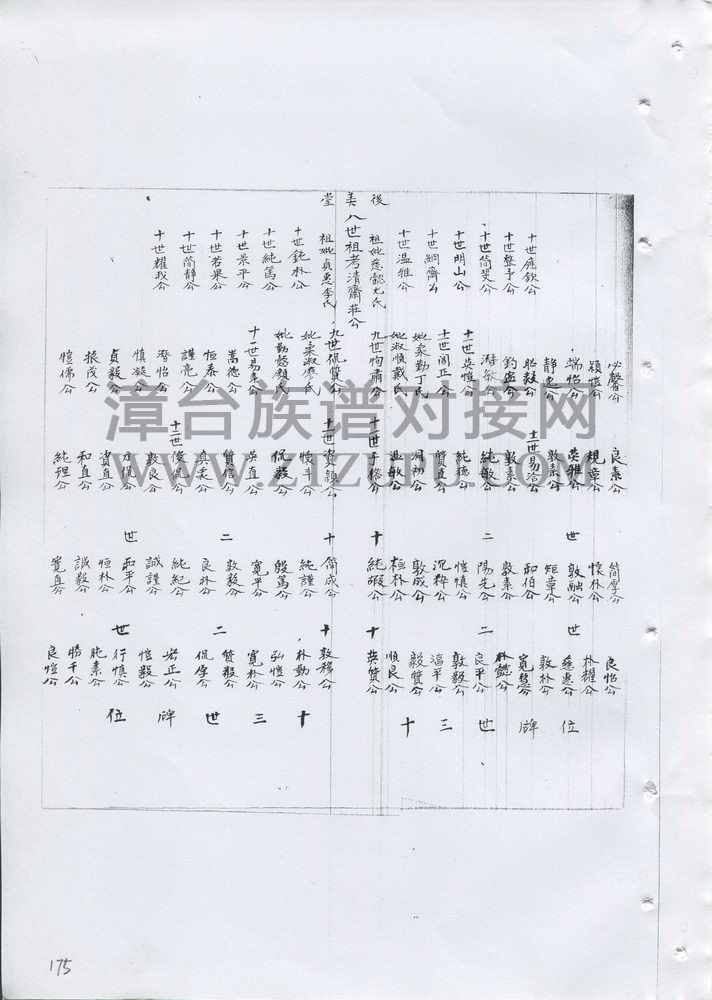 後美堂
十世應欽公
十世整予公
十世简斐公
十世明山公
十世綱齊公
十世温雅公
祖妣慈懿尤氏
八世祖考清齋莊公
祖妣貞惠李氏
十世鈍朴公
十世純篤公
十世景平公
十世若果公
十世简靜公
十世耀我公
必馨公
穎愷公
端怡公
靜惠公
昭毅公
釣盛公
潛敏公
十一世英愷公
十一世闇正公
妣柔勤丁氏
妣淑順戴氏
九世恂肅公
九世侃質公
妣柔淑廖氏
妣勤慈顏氏
十一世易素公
嵩德公
恒泰公
謹亮公
潛怡公
慎凝公
貞毅公
振茂公
愷儒公
良素公
規章公
英雅公
敦素公
十二世易洽公
敦素公
純敏公
純德公
質直公
淵初公
温敏公
十一世子榕公
十一世資穎公
樸斗公
侃毅公
英直公
質信公
真柔公
十二世俊迅公
敦良公
乃侃公
資直公
和直公
純理公
简厚公
懷朴公
敦融公
矩章公
和伯公
敦素公
陽光公
愷慎公
沉粹公
敦成公
植朴公
純嘏公
简成公
純謹公
毅篤公
寬平公
敦毅公
良朴公
純紀公
誠謹公
和平公
恒朴公
誠毅公
寬直公
十二世
十二世
良怡公
朴耀公
慈惠公
敦朴公
寬慧公
朴懿公
良平公
敦毅公
温平公
毅贊公
順良公
英贊公
敦穆公
朴勤公
弘愷公
寬朴公
質毅公
侃厚公
宏正公
愷毅公
行慎公
純素公
勝千公
良愷公
十二世
十二世
十三世牌位
十三世牌位
漳台族谱对接网
WWW.ZTZUPU.COM
175